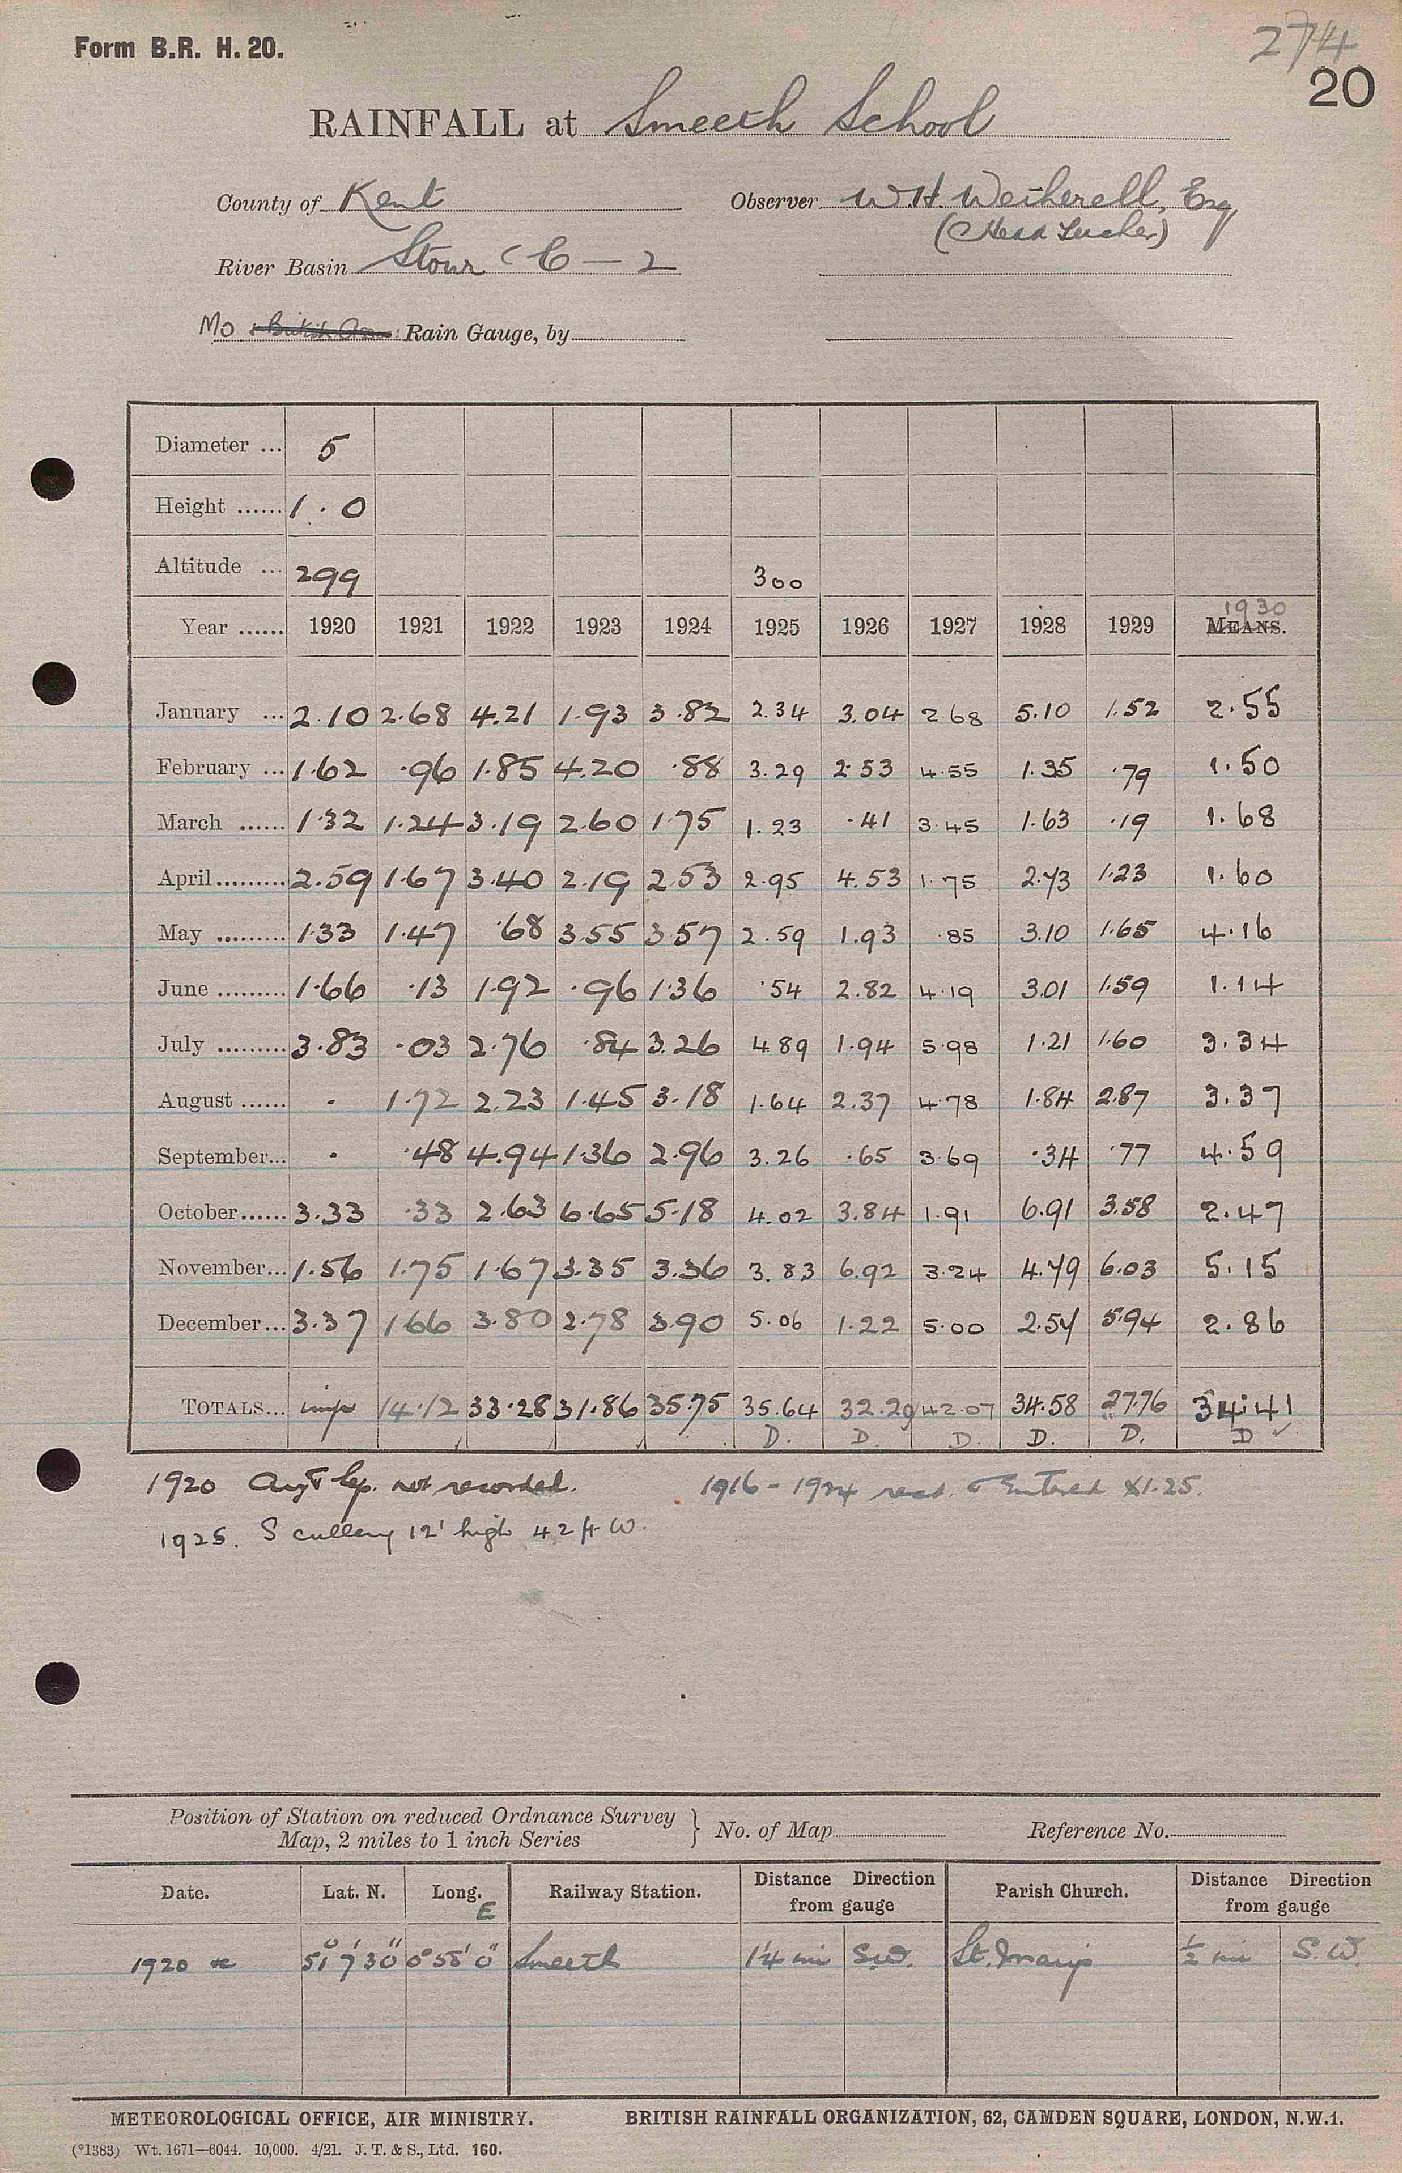 Form B.R. H. 20.
274
20
RAINFALL at Smeeth School
County of Kent Observer W.H. Wetherell, Esq
(Head Teacher)
River Basin Stour C6 — 2
Mo British Rain Gauge, by
Diameter ... 5
Height ...... 1 . 0
Altitude ... 299 300
Year ...... 1920 1921 1922 1923 1924 1925 1926 1927 1928 1929 1930 MEANS.
January ... 2.10 2.68 4.21 1.93 3.82 2.34 3.04 2.68 5.10 1.52 2.55
February ... 1.62 .96 1.85 4.20 .88 3.29 2.53 4.55 1.35 .79 1.50
March ...... 1.32 1.24 3.19 2.60 1.75 1.23 .41 3.45 1.63 .19 1.68
April ......... 2.59 1.67 3.40 2.19 2.53 2.95 4.53 1.75 2.73 1.23 1.60
May ......... 1.33 1.47 .68 3.55 3.57 2.59 1.93 .85 3.10 1.65 4.16
June ......... 1.66 .13 1.92 .96 1.36 .54 2.82 4.19 3.01 1.59 1.14
July ......... 3.83 .03 2.76 .84 3.26 4.89 1.94 5.98 1.21 1.60 3.34
August ...... . 1.72 2.23 1.45 3.18 1.64 2.37 4.78 1.84 2.87 3.37
September... . .48 4.94 1.36 2.96 3.26 .65 3.69 .34 .77 4.59
October ...... 3.33 .33 2.63 6.65 5.18 4.02 3.84 1.91 6.91 3.58 2.47
November... 1.56 1.75 1.67 3.35 3.36 3.83 6.92 3.24 4.79 6.03 5.15
December... 3.37 1.66 3.80 2.78 3.90 5.06 1.22 5.00 2.57 5.94 2.86
TOTALS... imp 14.12 33.28 31.86 35.75 35.64 32.20 42.07 34.58 27.76 34.41
D. D. D. D. D. D ✓
1920 Aug & Sep. not recorded. 1916 – 1924 recd. & Entered X1.25.
1925. Scullery 12' high 42 ft W.
Position of Station on reduced Ordnance Survey
Map, 2 miles to 1 inch Series } No. of Map Reference No.
Date. Lat. N. Long. E Railway Station. Distance Direction from gauge Parish Church. Distance Direction from gauge
1920 51° 7' 30" 0° 55' 0" Smeeth 1¼ mi S.W. St. Mary's ½ mi S.W.
METEOROLOGICAL OFFICE, AIR MINISTRY. BRITISH RAINFALL ORGANIZATION, 62, CAMDEN SQUARE, LONDON, N.W.1.
(*1383) Wt. 1671—6044. 10,000. 4/21. J. T. & S., Ltd. 160.